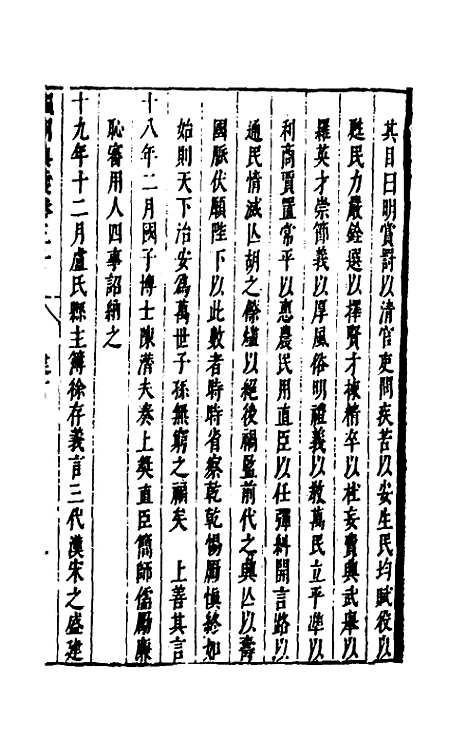 其目曰明賞罰以清官吏問疾苦以安生民均賦役以
甦民力嚴銓選以擇賢才棟精卒以杜妄費興武舉以
羅英才崇節義以厚風俗明禮義以教萬民立平準以
利商賈置常平以惠農民用直臣以任彈糾開言路以
通民情滅亾胡之餘孽以絕後禍監前代之興亾以壽
國脈伏願陛下以此數者時時省察乾乾惕厲慎終如
始則天下治安爲萬世子孫無窮之福矣 上善其言
十八年二月國子博士陳潛夫奏上獎直臣簡師儒勵廉
恥審用人四事詔納之
十九年十二月盧氏縣主簿徐存義言三代漢宋之盛建